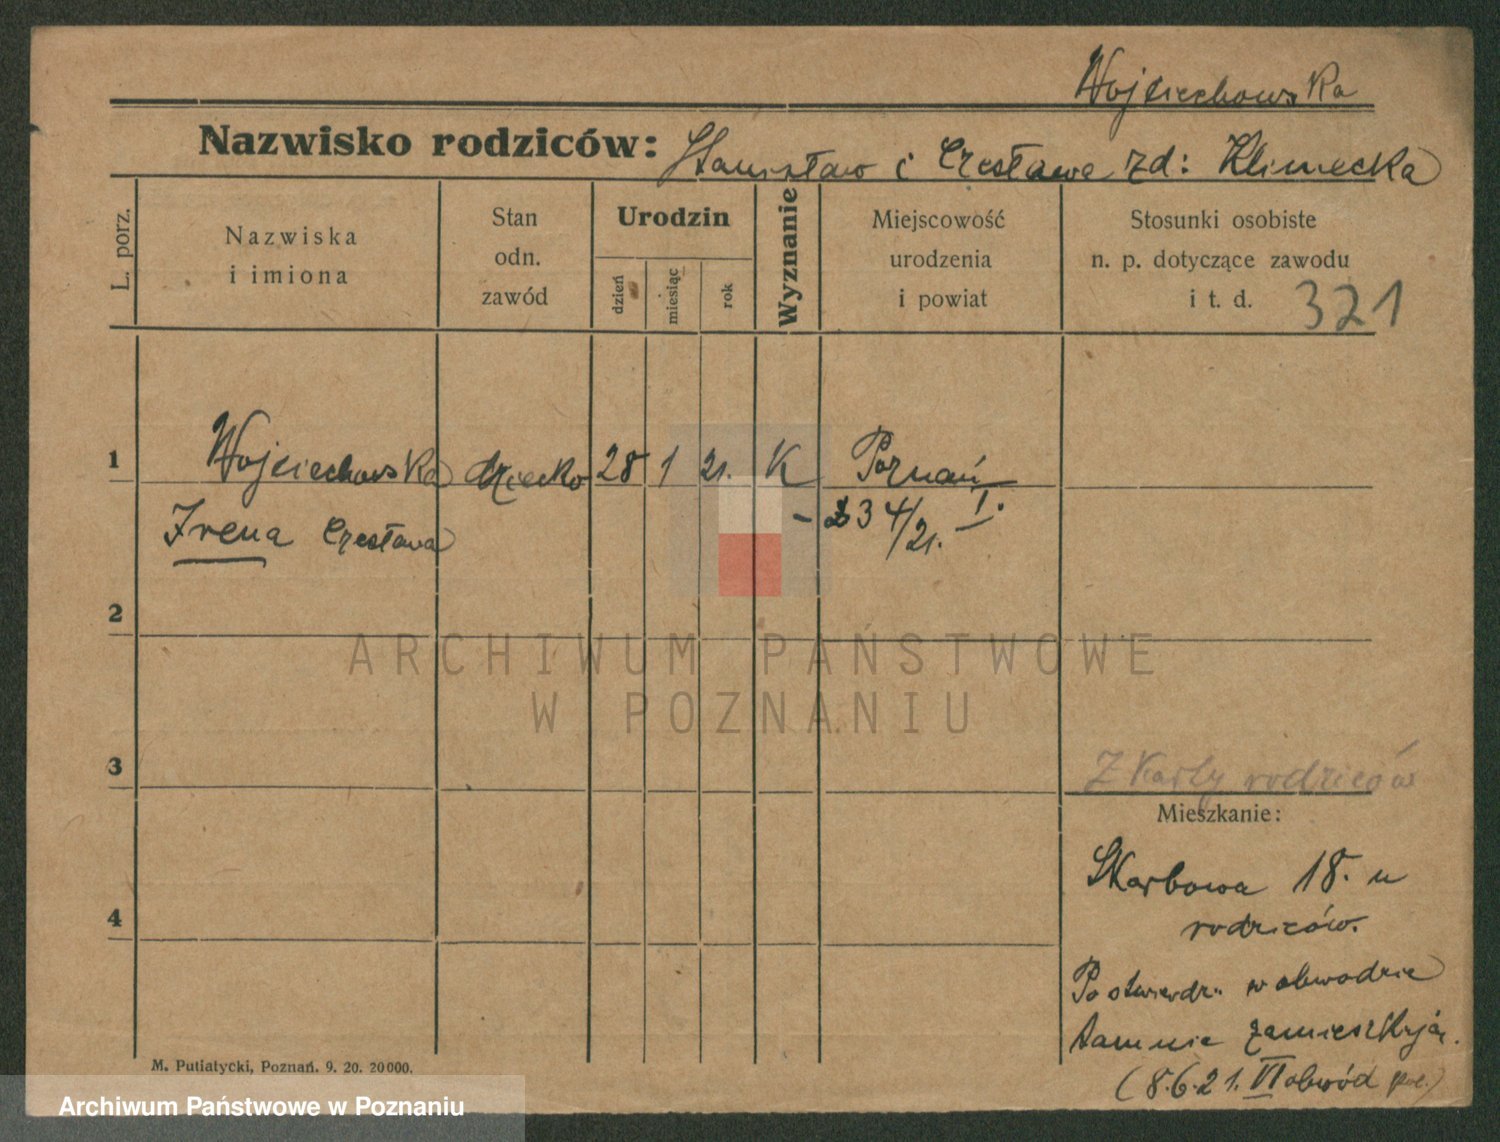 Wojciechowska
Nazwisko rodziców: Stanisław i Czesława zd: Klimecka
L. porz.
Nazwiska
i imiona
Stan
odn.
zawód
Urodzin
dzień
miesiąc
rok
Wyznanie
Miejscowość
urodzenia
i powiat
Stosunki osobiste
n. p. dotyczące zawodu
i t. d.
321
1 Wojciechowska dziecko 28 1 21. K Poznań
Irena Czesława
- 234/21. I.
2
3
4
ARCHIWUM PAŃSTWOWE
W POZNANIU
Z Karty rodziców
Mieszkanie:
Skarbowa 18. u
rodziców.
Po stwierdz. w obwodzie
tamnie zamieszkują.
(8.6.21. VI obwód pol.)
M. Putiatycki, Poznań. 9. 20. 20000.
Archiwum Państwowe w Poznaniu